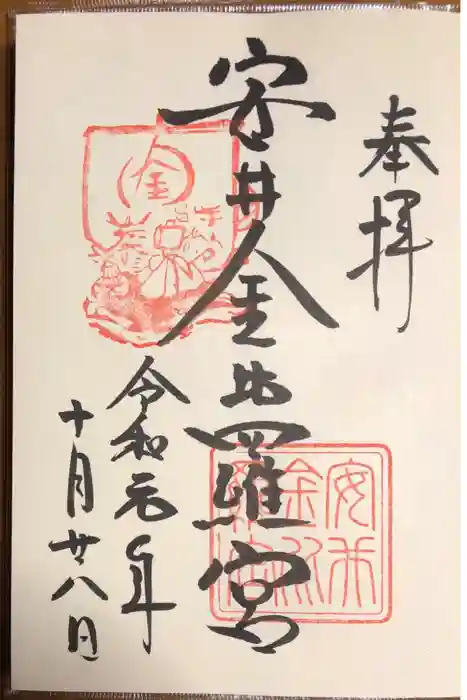 奉拝
安井金比羅宮
令和元年
十月廿八日
金
安井
金比
羅宮